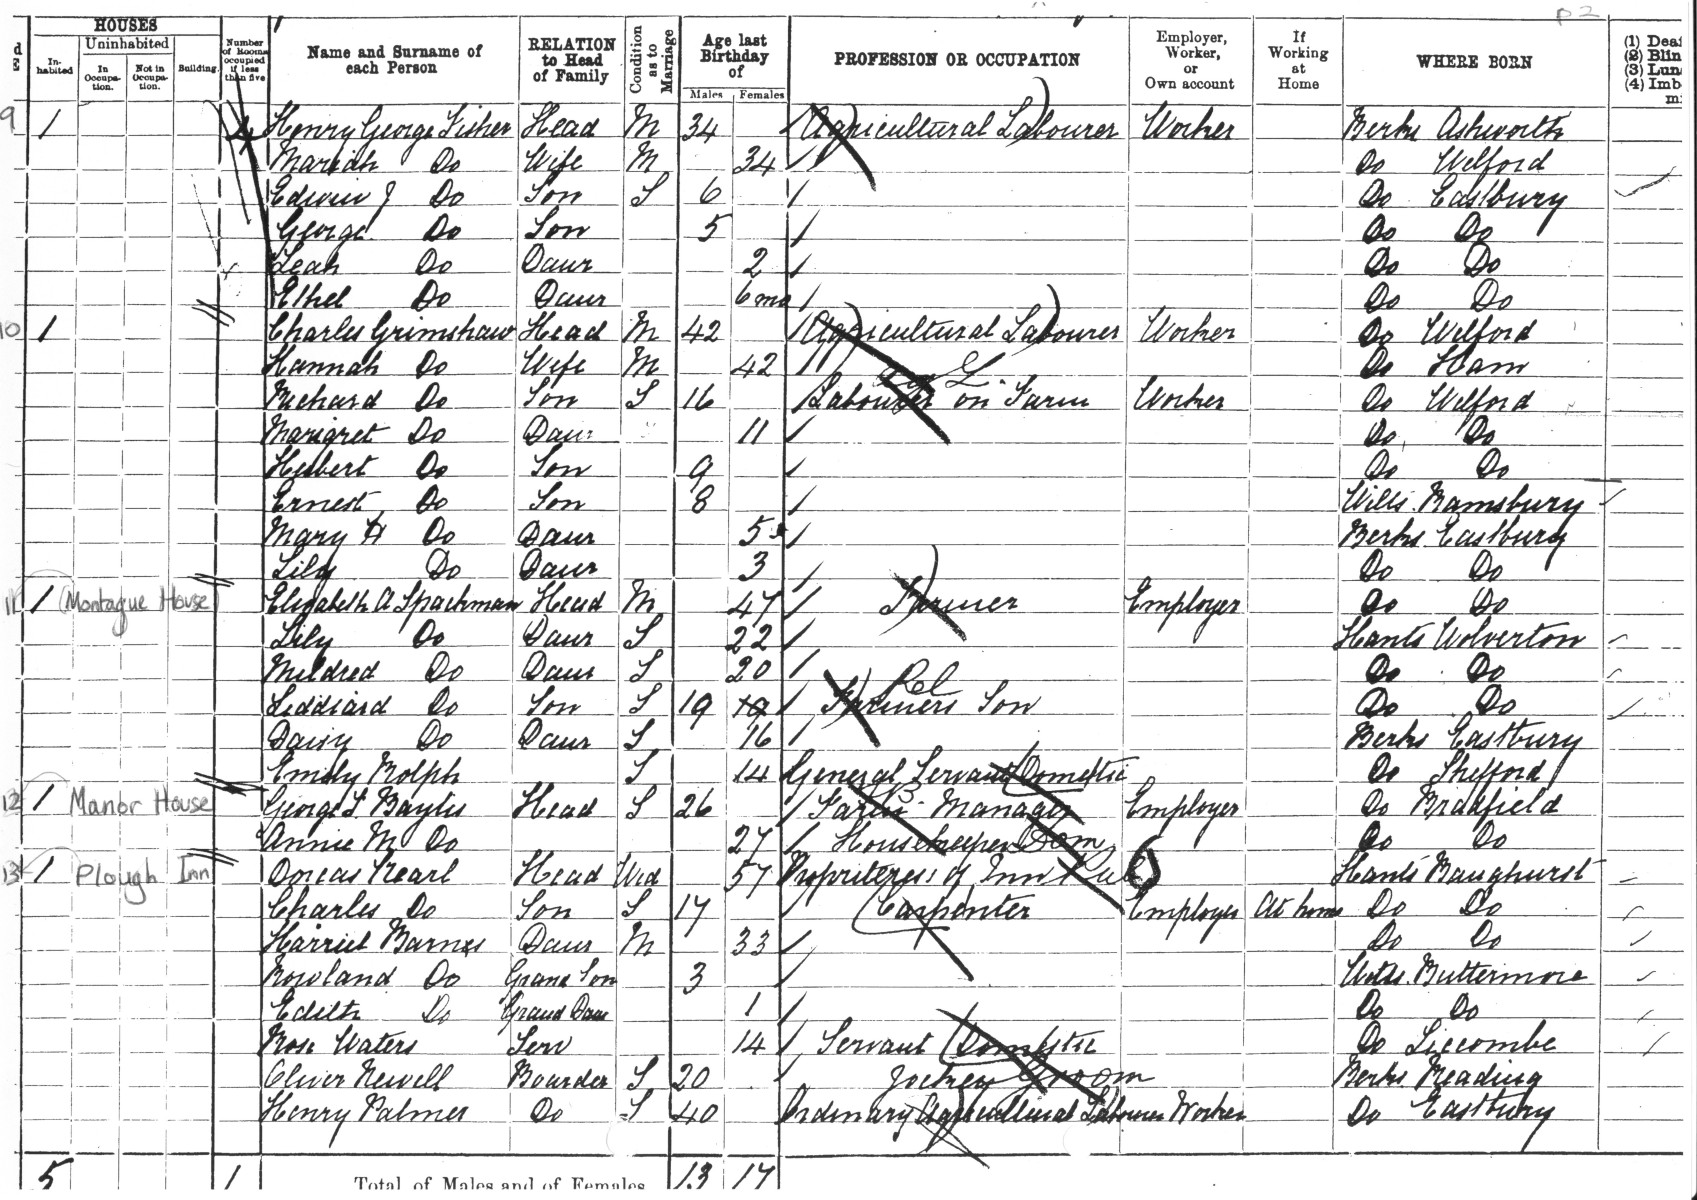 p 2
HOUSES
Uninhabited
In-habited
In Occupa-tion.
Not in Occupa-tion.
Building.
Number of Rooms occupied if less than five
Name and Surname of each Person
RELATION to Head of Family
Condition as to Marriage
Age last Birthday of
Males Females
PROFESSION OR OCCUPATION
Employer, Worker, or Own account
If Working at Home
WHERE BORN
(1) Deaf
(2) Blin
(3) Lun
(4) Imb
9 1 4 Henry George Fisher Head M 34 Agricultural Labourer Worker Berks Ashworth
Mariah Do Wife M 34 Do Welford
Edwin J Do Son S 6 Do Eastbury
George Do Son 5 Do Do
Leah Do Daur 2 Do Do
Ethel Do Daur 6mo Do Do
10 1 Charles Grimshaw Head M 42 Agricultural Labourer Worker Do Welford
Hannah Do Wife M 42 Do Ham
Richard Do Son S 16 Labourer on Farm Worker Do Welford
Margret Do Daur 11 Do Do
Herbert Do Son 9 Do Do
Ernest Do Son 8 Wilts Ramsbury
Mary A Do Daur 5 Berks Eastbury
Lily Do Daur 3 Do Do
11 1 Montague House Elizabeth A Spackman Head M 47 Farmer Employer Do Do
Lily Do Daur S 22 Hants Wolverton
Mildred Do Daur S 20 Do Do
Liddiard Do Son S 19 19 Farmers Son Rel Do Do
Daisy Do Daur S 16 Berks Eastbury
Emily Rolph S 14 General Servant Domestic Do Shefford
12 1 Manor House George F Baylis Head S 26 Farm Manager Employer Do Bradfield
Annie M Do 27 Housekeeper Dom Do Do
13 1 Plough Inn Dorcas Pearl Head Wid 57 Propriteress of Inn Pub 6 Hants Baughurst
Charles Do Son S 17 Carpenter Employer At home Do Do
Harriet Barnes Daur M 33 Do Do
Rowland Do Grand Son 3 Wilts Buttermore
Edith Do Grand Daur 1 Do Do
Rose Waters Serv 14 Servant Domestic Do Liccombe
Oliver Newell Boarder S 20 Jockey Groom Berks Reading
Henry Palmer Do S 40 Ordinary Agricultural Labourer Worker Do Eastbury
5 1 Total of Males and of Females 13 17